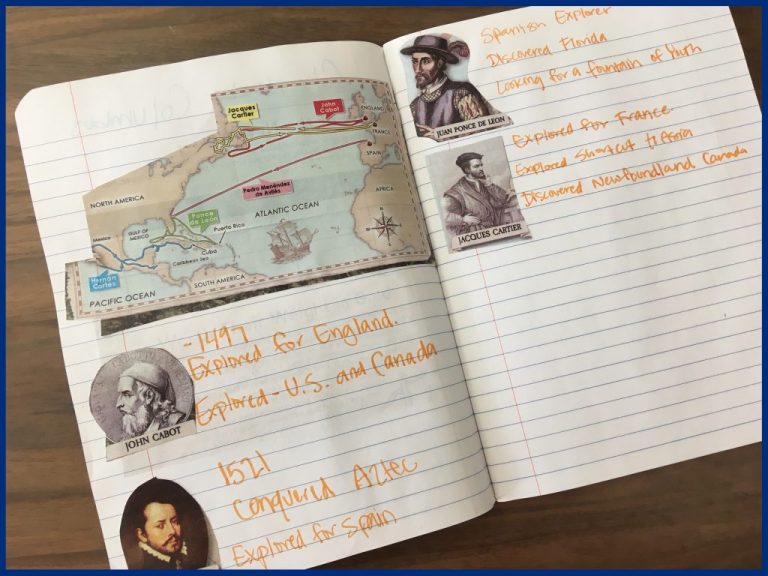 Jacques
Cartier
John
Cabot
ENGLAND
FRANCE
SPAIN
NORTH AMERICA
Pedro Menéndez
de Avilés
AFRICA
ATLANTIC OCEAN
Ponce
de León
GULF OF
MEXICO
Puerto Rico
Cuba
Caribbean Sea
Hernán
Cortés
SOUTH AMERICA
PACIFIC OCEAN
-1497
Explored for England.
Explored - U.S. and Canada
JOHN CABOT
1521
Conquered Aztec
Explored for Spain
Spanish Explorer
Discovered Florida
Looking for a fountain of Yuth
JUAN PONCE DE LEÓN
Explored for France
Explored Shortcut
Discovered Newfoundland Canada
JACQUES CARTIER